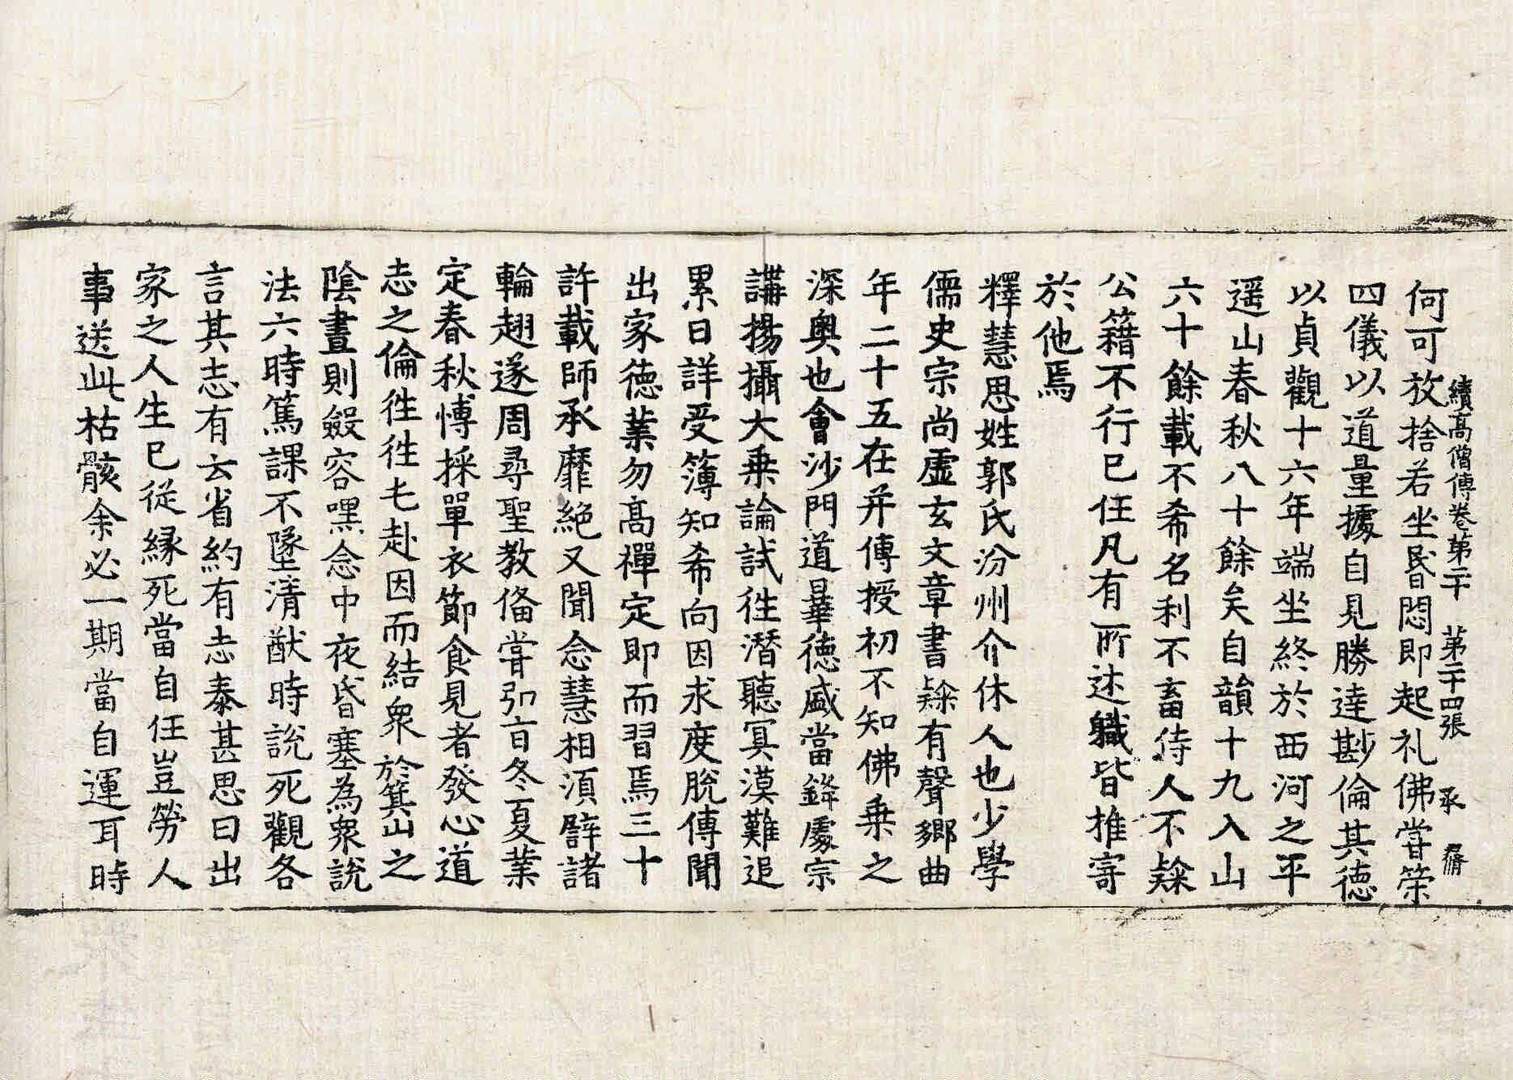 續高僧傳卷第二十 第二十四張 承 齋
何可放捨若坐昏悶即起礼佛甞榮
四儀以道量據自見勝達尠倫其德
以貞觀十六年端坐終於西河之平
遥山春秋八十餘矣自韻十九入山
六十餘載不希名利不畜侍人不𨽻
公籍不行己任凡有所述職皆推寄
於他焉
釋慧思姓郭氏汾州介休人也少學
儒史宗尚虛玄文章書𨽻有聲鄉曲
年二十五在并傳授初不知佛乗之
深奥也會沙門道曅德盛當鋒處宗
講揚攝大乗論試徃潛聽冥漠難追
累日詳受簿知希向因求度脫傳聞
出家德業勿高禪定即而習焉三十
許載師承靡絶又聞念慧相湏辟諸
輪翅遂周尋聖教俻甞弘旨冬夏業
定春秋愽採單衣節食見者發心道
志之倫徃徃屯赴因而結衆於箕山之
陰晝則㪘容嘿念中夜昏塞為衆說
法六時篤課不墜清猷時說死觀各
言其志有云省約有志泰甚思曰出
家之人生已從縁死當自任豈勞人
事送此枯骸余必一期當自運耳時